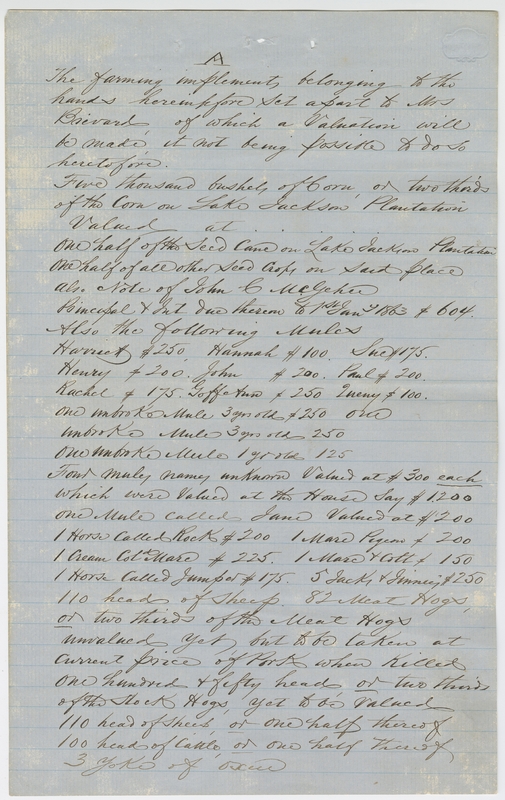 A
The farming implements belonging to the
hands hereinfore Set apart to Mrs
Brevard, of which a Valuation will
be made, it not being possible to do so
heretofore.
Five thousand bushels of Corn, or two thirds
of the Corn on Lake Jackson Plantation
Valued at
One half of the Seed Cane on Lake Jackson Plantation
One half of all other Seed Crops on Said place
also Note of John C McGehee
Principal & Int due thereon to 1st Jany 1863 $ 604.
Also the following Mules
Harriet $250. Hannah $100. Sue $175.
Henry $200. John $200. Paul $200.
Rachel $175. Goffe Ann $250 Queny $100.
One unbroke Mule 3 yrs old $250 one
unbroke Mule 3 yrs old 250
One unbroke Mule 1 yr old 125
Four mules names unknown Valued at $300 each
which were Valued at the House Say $1200
One Mule called Jane Valued at $200
1 Horse Called Rock $200 1 Mare Pigeon $200
1 Cream Cold Mare $225. 1 Mare & Colt $150
1 Horse Called Jumper $175. 5 Jacks & Jinneys $250
110 head of Sheep. 82 Meat Hogs,
or two thirds of the Meat Hogs
unvalued yet, but to be taken at
Current price of Pork when killed
One hundred & fifty head or two thirds
of the Stock Hogs, yet to be Valued
110 head of sheep, or one half thereof
100 head of Cattle, or one half thereof
3 Yoke of oxen